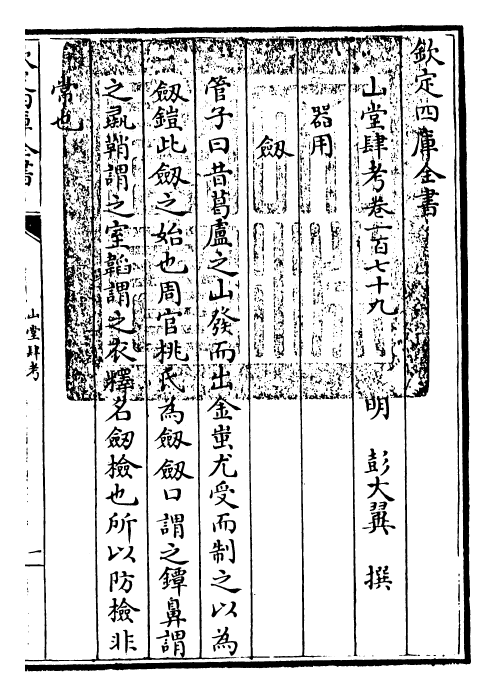 欽定四庫全書
山堂肆考卷一百七十九
明 彭大翼 撰
器用
劔
管子曰昔葛盧之山發而出金蚩尤受而制之以為
劔鎧此劔之始也周官桃氏為劔劔口謂之鐔鼻謂
之鼻鞘謂之室韜謂之衣釋名劔檢也所以防檢非
常也
山堂肆考